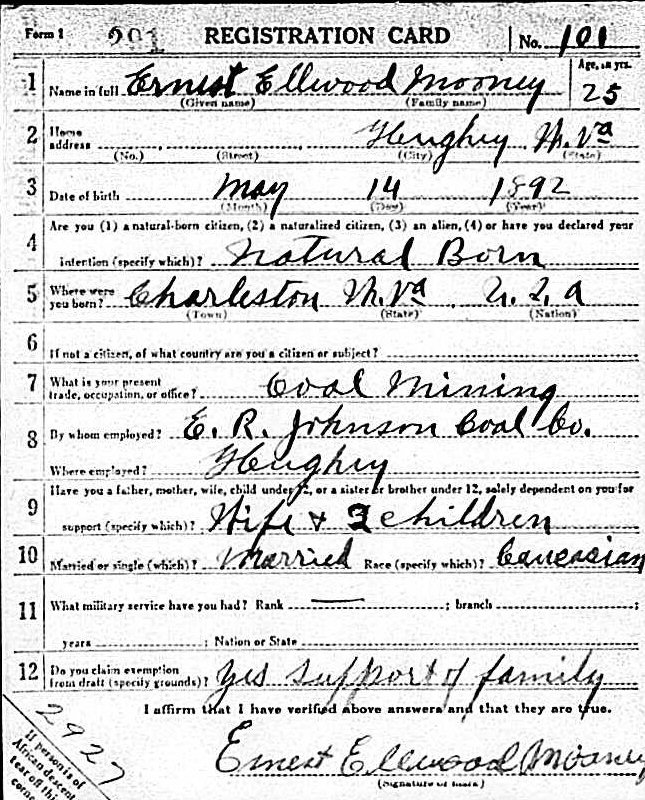 Form 1 201 REGISTRATION CARD No. 101
1 Name in full Ernest Ellwood Mooney Age, in yrs. 25
(Given name) (Family name)
2 Home address Hughey W. Va
(No.) (Street) (City) (State)
3 Date of birth May 14 1892
(Month) (Day) (Year)
4 Are you (1) a natural-born citizen, (2) a naturalized citizen, (3) an alien, (4) or have you declared your
intention (specify which)? Natural Born
5 Where were you born? Charleston W. Va U. S. a
(Town) (State) (Nation)
6 If not a citizen, of what country are you a citizen or subject?
7 What is your present trade, occupation, or office? Coal Mining
8 By whom employed? E. R. Johnson Coal Co.
Where employed? Hughey
9 Have you a father, mother, wife, child under 12, or a sister or brother under 12, solely dependent on you for
support (specify which)? Wife + children
10 Married or single (which)? Married Race (specify which)? Caucasian
11 What military service have you had? Rank — ; branch ;
years ; Nation or State
12 Do you claim exemption from draft (specify grounds)? Yes support of family
I affirm that I have verified above answers and that they are true.
2927
Ernest Ellwood Mooney
(Signature or mark)
If person is of
African descent
tear off this
corner